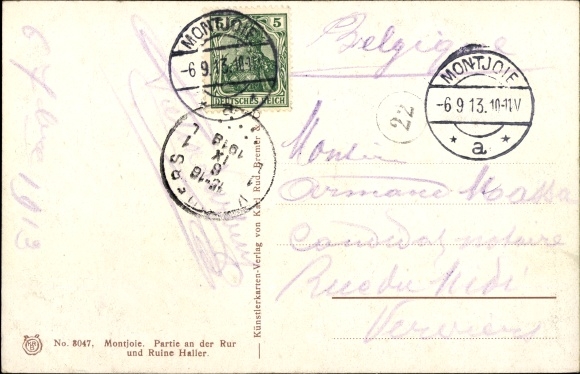 5
DEUTSCHES REICH
MONTJOIE
-6 9 13. 10-11V
* a *
MONTJOIE
-6 9. 13. 10-11V
* a *
22
Belgique
Monsieur
Armand
Candidat notaire
Rue du Midi
Verviers
1913
VERVIERS
IX
1913
Künstlerkarten-Verlag von Karl Rud. Bremer &
No. 8047. Montjoie. Partie an der Rur
und Ruine Haller.